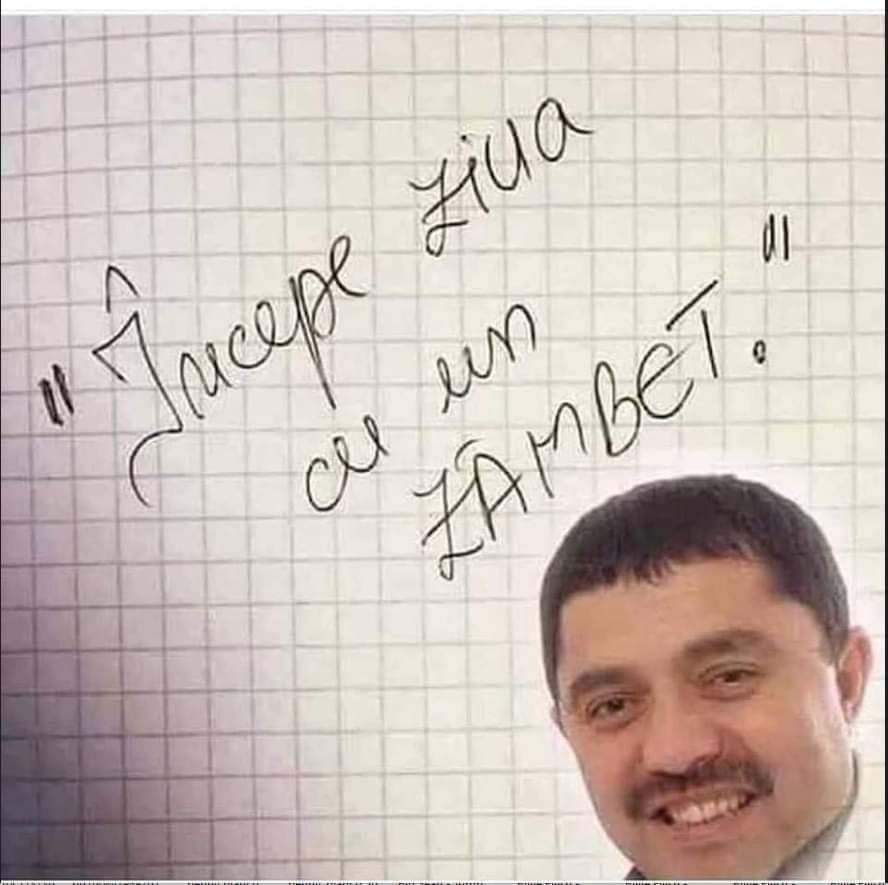 "Începe ziua
cu un
ZÂMBET."